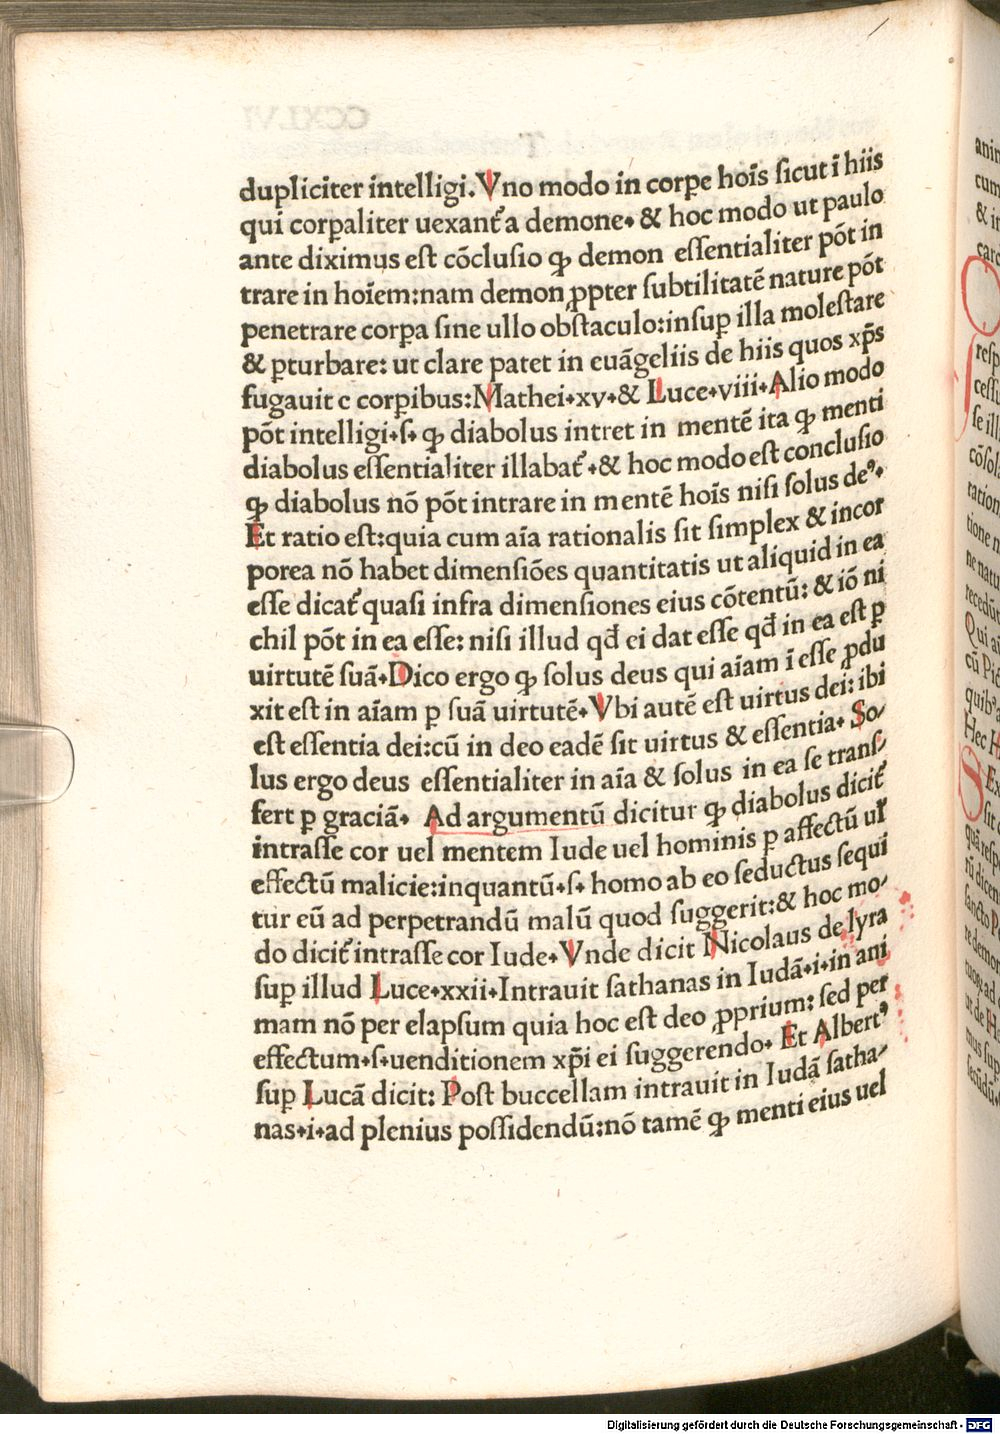 dupliciter intelligi. Vno modo in corpe hoīs ſicut ī hiis
qui corꝑaliter uexant᷑ a demone. & hoc modo ut paulo
ante diximus eſt cōcluſio ꝙ demon eſſentialiter pōt in
trare in hoīem: nam demon ꝓpter ſubtilitatē nature pōt
penetrare corꝑa ſine ullo obſtaculo: inſuꝑ illa moleſtare
& ꝑturbare: ut clare patet in euāgeliis de hiis quos xp̄s
fugauit c corꝑibus: Mathei.xv.& Luce.viii. Alio modo
pōt intelligi.ſ. ꝙ diabolus intret in mentē ita ꝙ menti
diabolus eſſentialiter illabat᷑. & hoc modo eſt concluſio
ꝙ diabolus nō pōt intrare in mentē hoīs niſi ſolus deꝰ.
Et ratio eſt: quia cum aīa rationalis ſit ſimplex & incor
porea nō habet dimenſiōes quantitatis ut aliquid in ea
eſſe dicat᷑ quaſi infra dimenſiones eius cōtentū: & iō ni
chil pōt in ea eſſe: niſi illud qđ ei dat eſſe qđ in ea eſt ꝑ
uirtutē ſuā. Dico ergo ꝙ ſolus deus qui aīam ī eſſe ꝓdu
xit eſt in aīam ꝑ ſuā uirtutē. Vbi autē eſt uirtus dei: ibi
eſt eſſentia dei: cū in deo eadē ſit uirtus & eſſentia. So/
lus ergo deus eſſentialiter in aīa & ſolus in ea ſe tranſ/
fert ꝑ graciā. Ad argumentū dicitur ꝙ diabolus dicit᷑
intraſſe cor uel mentem Iude uel hominis ꝑ affectū uł
effectū malicie: inquantū.ſ. homo ab eo ſeductus ſequi
tur eū ad perpetrandū malū quod ſuggerit: & hoc mo/
do dicit᷑ intraſſe cor Iude. Vnde dicit Nicolaus de lyra
ſuꝑ illud Luce.xxii. Intrauit ſathanas in Iudā.i.in ani
mam nō per elapſum quia hoc eſt deo ꝓprium: ſed per
effectum.ſ.uenditionem xp̄i ei ſuggerendo. Et Albertꝰ
ſuꝑ Lucā dicit: Poſt buccellam intrauit in Iudā ſatha/
nas.i.ad plenius poſſidendū: nō tamē ꝙ menti eius uel
Digitalisierung gefördert durch die Deutsche Forschungsgemeinschaft - DFG